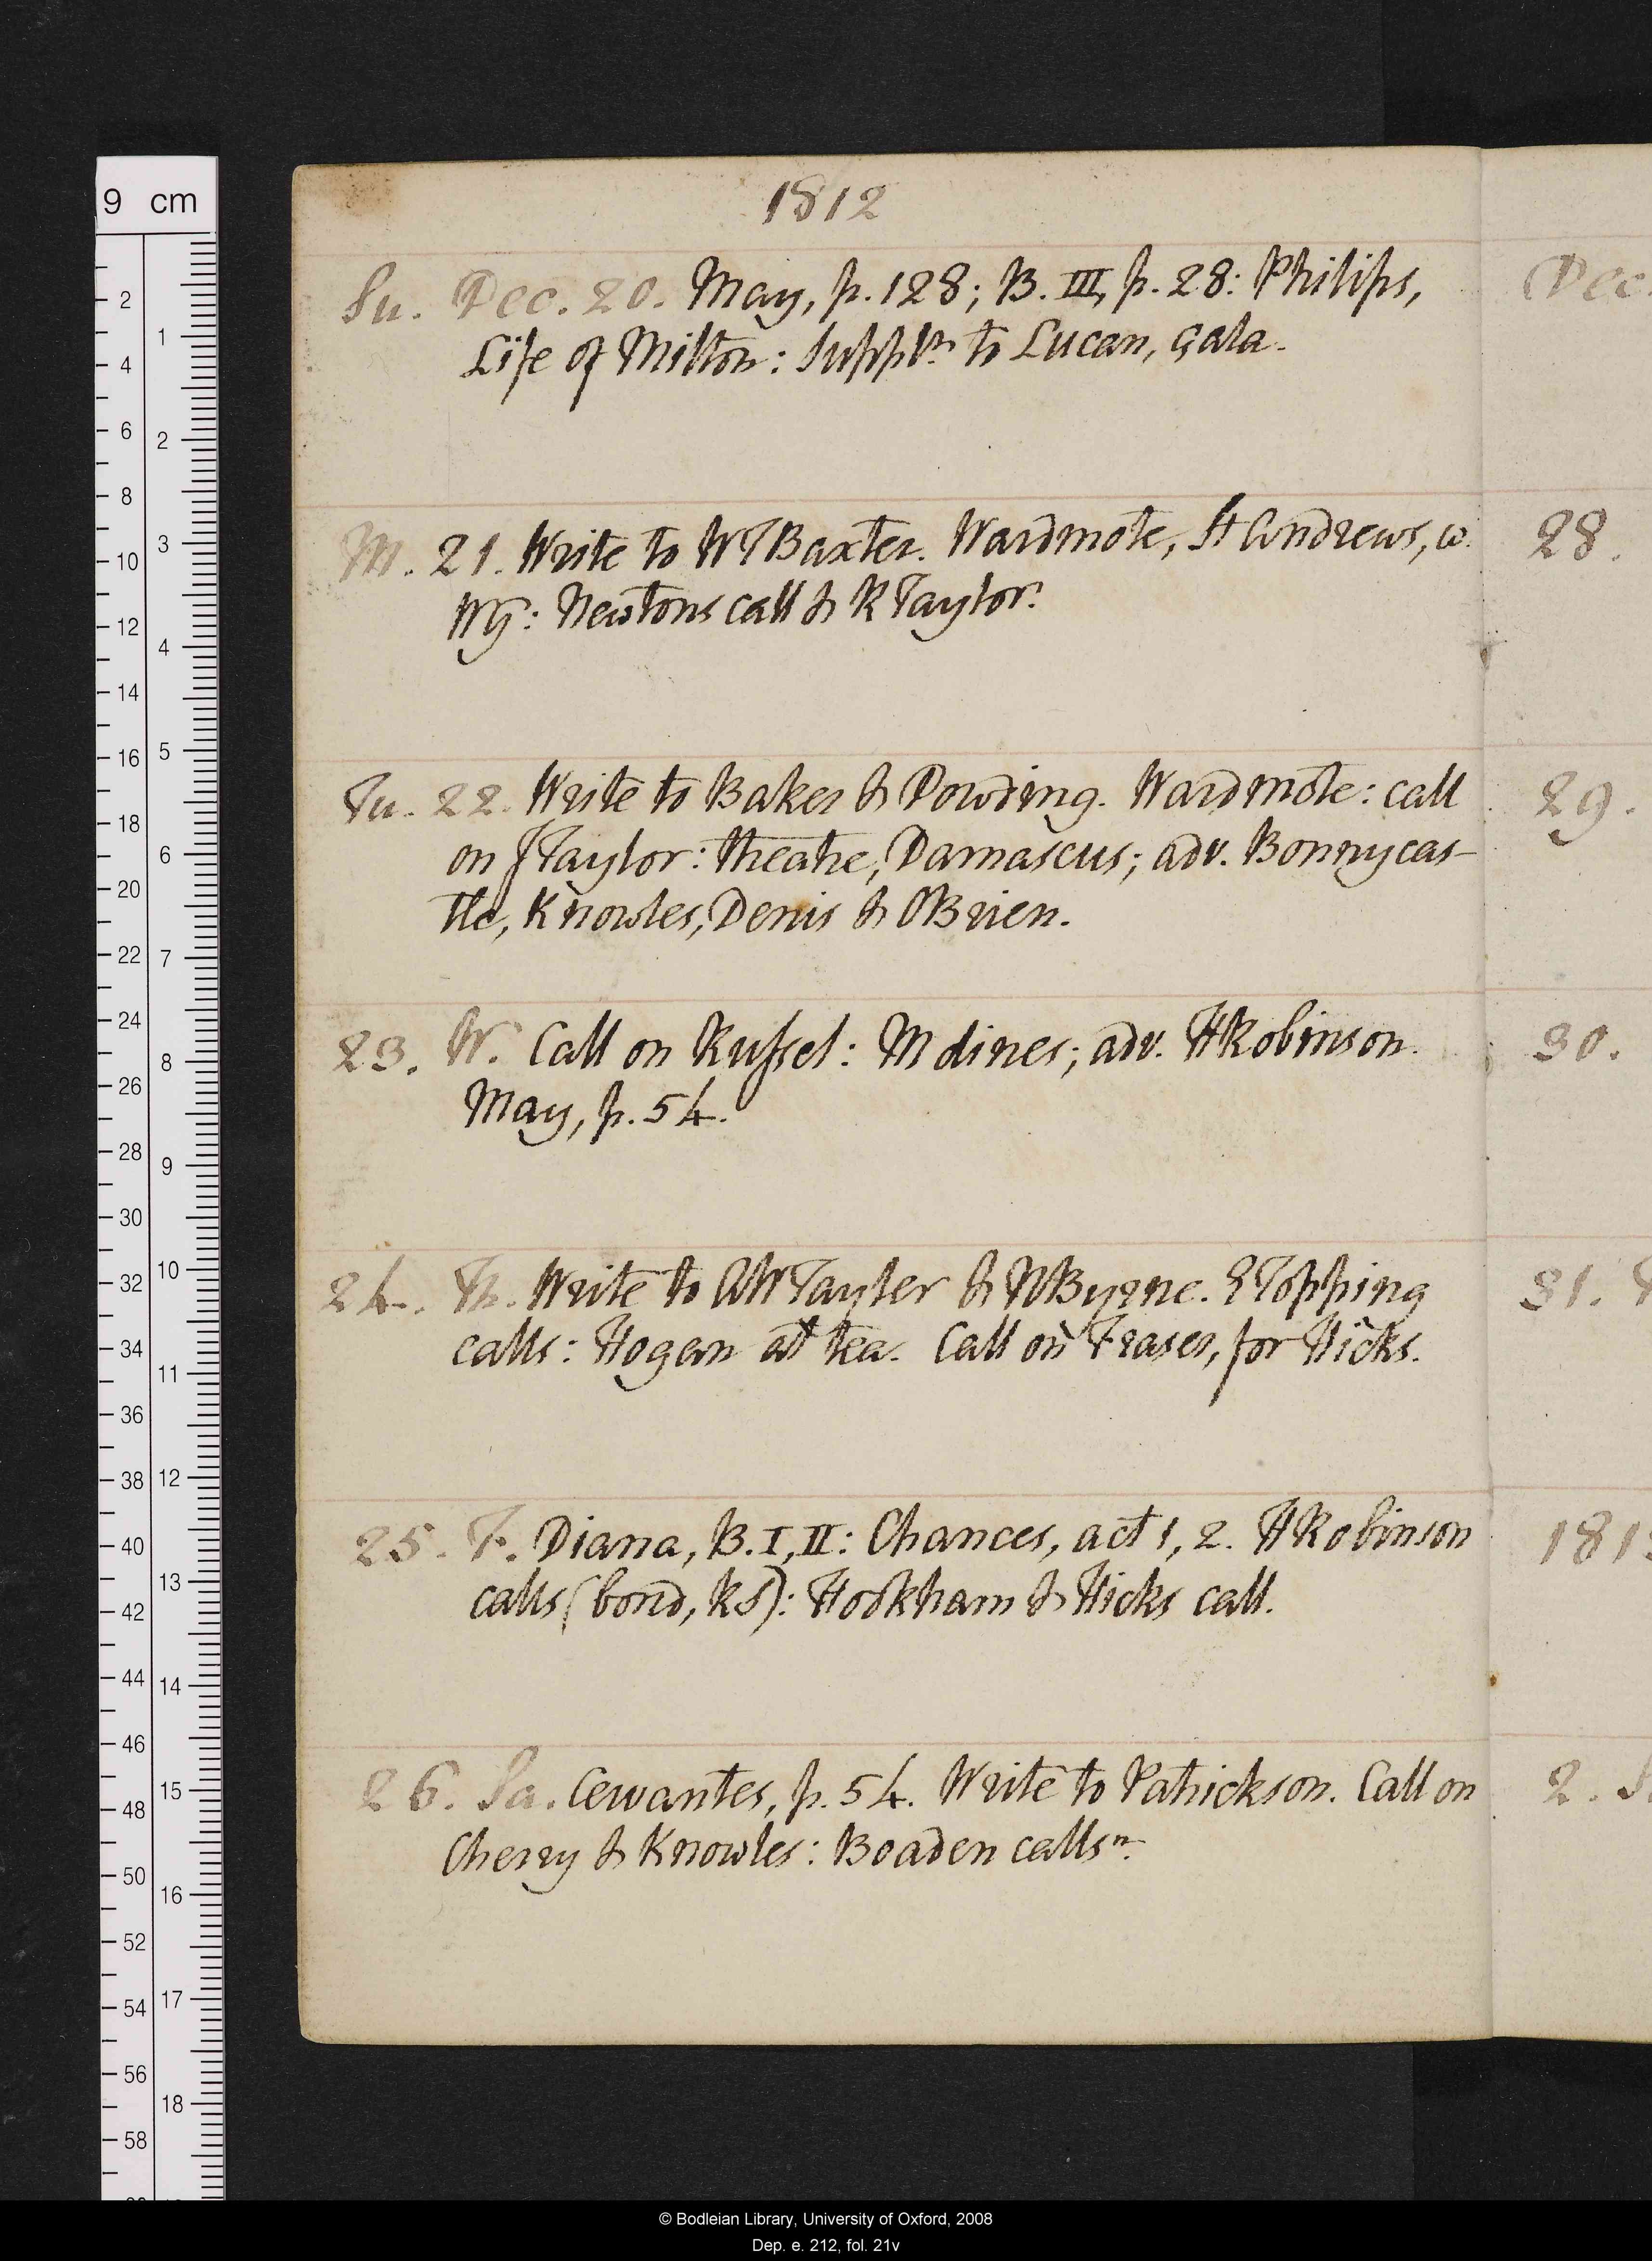 1812
Su. Dec. 20. May, p. 128; B. III, p. 28: Philips,
Life of Milton: Supplt. to Lucan, gala.
M. 21. Write to WTBaxter. Wardmote, St Andrews, w.
WG: Newtons call & RTaylor.
Tu. 22. Write to Baker & Dowding. Wardmote: call
on JTaylor: theatre, Damascus; adv. Bonnycas-
tle, Knowles, Denis & OBrien.
23. W. Call on Russel: M dines; adv. HRobinson.
May, p. 54.
24. Th. Write to AWTayler & NByrne. ETopping
calls: Hogan at tea. Call on Fraser, for Hicks.
25. F. Diana, B. I, II: Chances, act 1, 2. HRobinson
calls (bond, RS): Hookham & Hicks call.
26. Sa. Cervantes, p. 54. Write to Patrickson. Call on
Cherry & Knowles: Boaden calls n.
Dec.
28.
29.
30.
31.
181
2.
9 cm
2
4
6
8
10
12
14
16
18
20
22
24
26
28
30
32
34
36
38
40
42
44
46
48
50
52
54
56
58
1
2
3
4
5
6
7
8
9
10
11
12
13
14
15
16
17
18
© Bodleian Library, University of Oxford, 2008
Dep. e. 212, fol. 21v